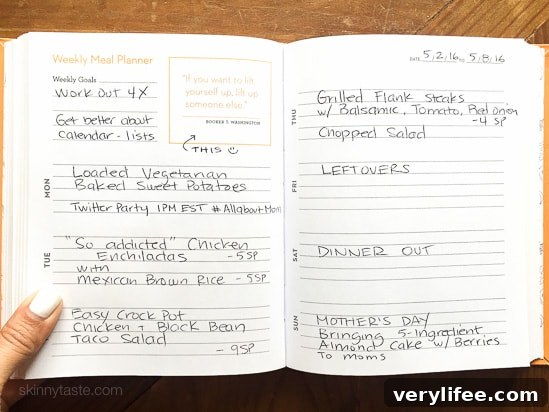 Weekly Meal Planner
Weekly Goals
Work Out 4X
Get better about
calendar - lists.
"If you want to lift
yourself up, lift up
someone else."
BOOKER T. WASHINGTON
THIS
MON
Loaded Vegetarian
Baked Sweet Potatoes
Twitter Party 1PM EST #AllaboutMom
TUE
"So addicted" Chicken
Enchiladas - 5SP
with
Mexican Brown Rice - 5SP
Easy Crock Pot
Chicken + Black Bean
Taco Salad
- 9SP
DATE 5/2/16 to 5/8/16
THU
Grilled Flank Steaks
w/ Balsamic, Tomato, Red Onion
- 4 SP
Chopped Salad
FRI
LEFTOVERS
SAT
DINNER OUT
SUN
MOTHER'S DAY
Bringing 5-Ingredient
Almond Cake w/ Berries
To moms
skinnytaste.com
verylifee.com